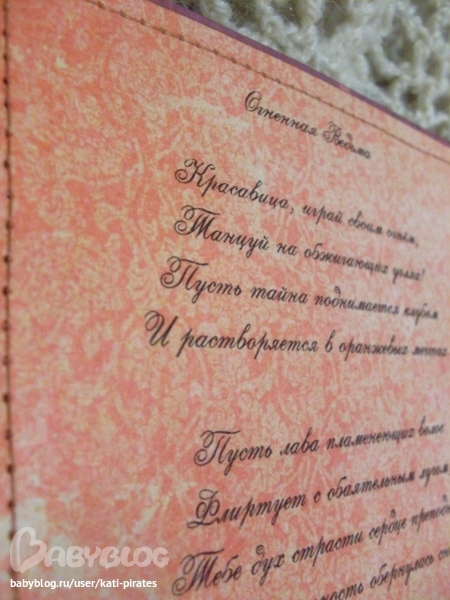 Огненная Ведьма
Красавица, играй своим огнём,
Танцуй на обжигающих углях!
Пусть тайна поднимается клубом
И растворяется в оранжевых мечтах.
Пусть лава пламенеющих волос
Флиртует с обаятельным
Тебе дух страсти сердце
обернулась
BABYBLOG
babyblog.ru/user/kati-pirates